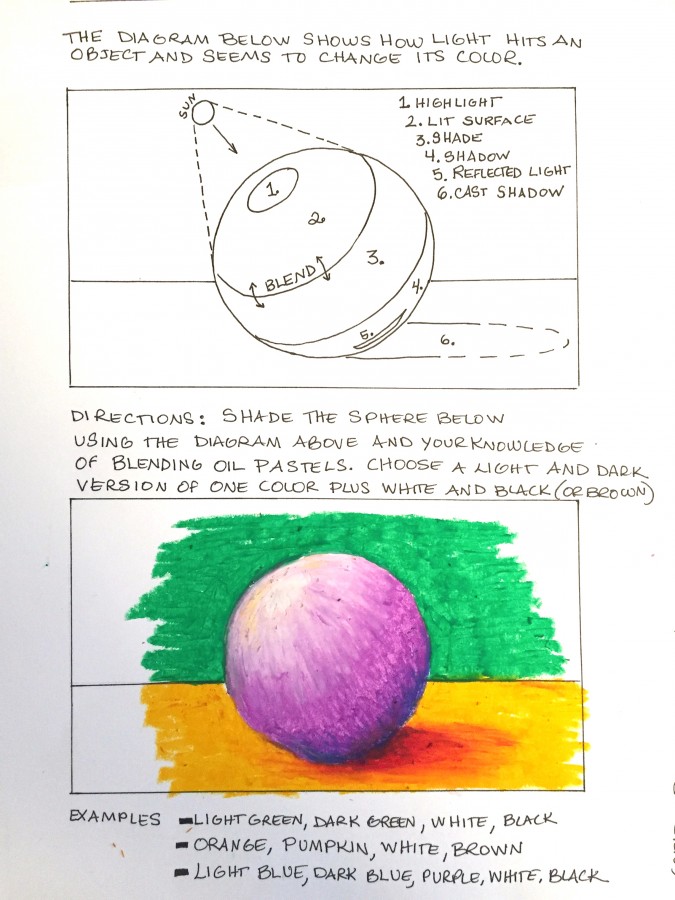 THE DIAGRAM BELOW SHOWS HOW LIGHT HITS AN
OBJECT AND SEEMS TO CHANGE ITS COLOR.
SUN
1. HIGHLIGHT
2. LIT SURFACE
3. SHADE
4. SHADOW
5. REFLECTED LIGHT
6. CAST SHADOW
1.
2.
BLEND
3.
4.
5.
6.
DIRECTIONS: SHADE THE SPHERE BELOW
USING THE DIAGRAM ABOVE AND YOUR KNOWLEDGE
OF BLENDING OIL PASTELS. CHOOSE A LIGHT AND DARK
VERSION OF ONE COLOR PLUS WHITE AND BLACK (OR BROWN)
EXAMPLES - LIGHT GREEN, DARK GREEN, WHITE, BLACK
- ORANGE, PUMPKIN, WHITE, BROWN
- LIGHT BLUE, DARK BLUE, PURPLE, WHITE, BLACK